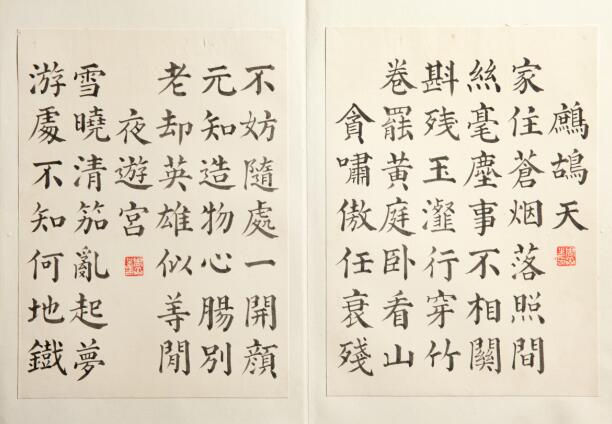 鷓鴣天
家住蒼烟落照間
絲毫塵事不相關
斟残玉瀣行穿竹
卷罷黄庭卧看山
貪嘯傲任衰殘
不妨隨處一開顔
元知造物心腸別
老却英雄似等閒
夜遊宮
雪曉清笳亂起夢
游處不知何地鐵